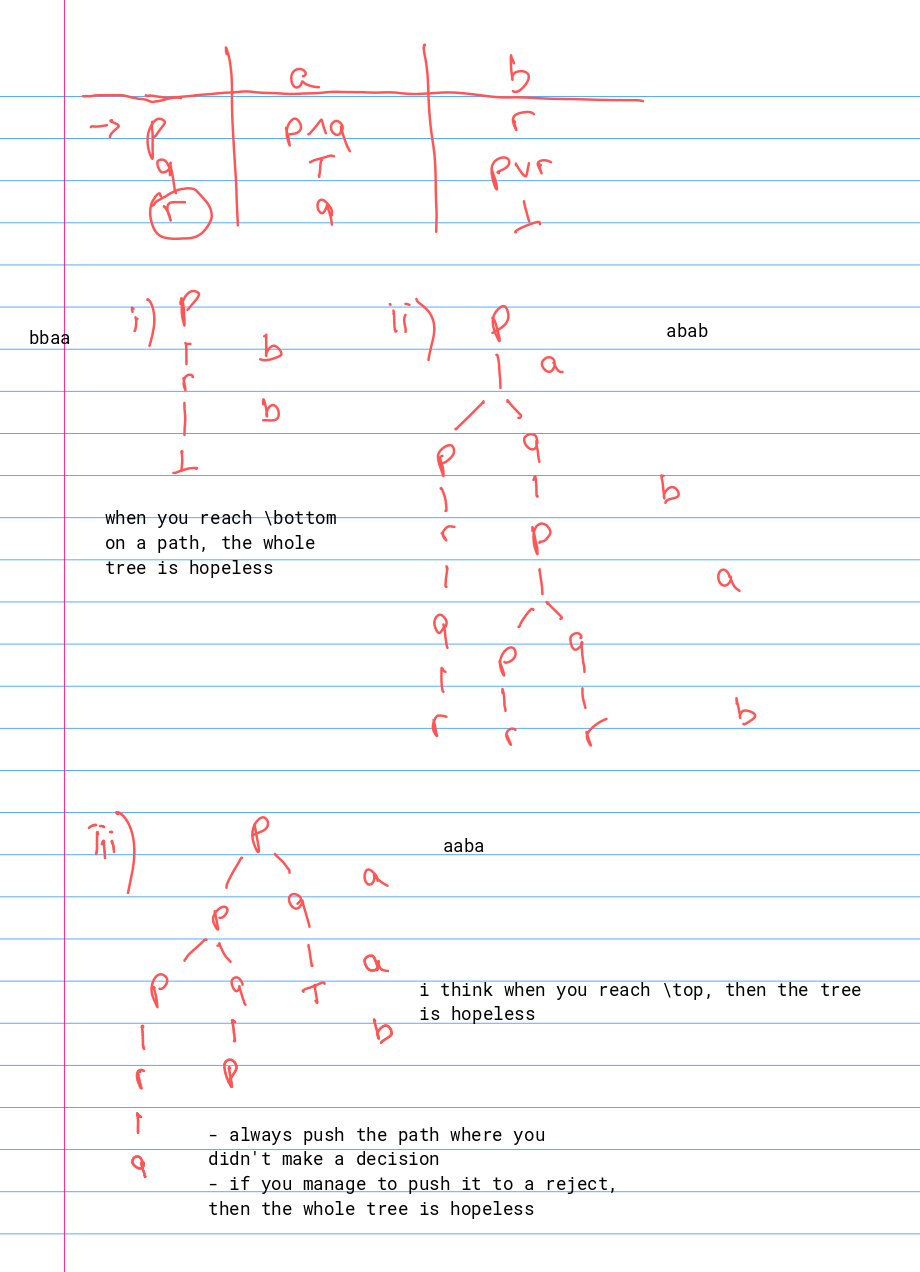 a b
→ p p∧q r
q ⊤ p∨r
r q ⊥
i) p ii) p
bbaa abab
r b
b a
⊥
p q
b
r p
when you reach \bottom
on a path, the whole
tree is hopeless
a
q p q
r r r b
iii) p aaba
a
p q
a
p q ⊤
i think when you reach \top, then the tree
is hopeless
b
r p
q
- always push the path where you
didn't make a decision
- if you manage to push it to a reject,
then the whole tree is hopeless